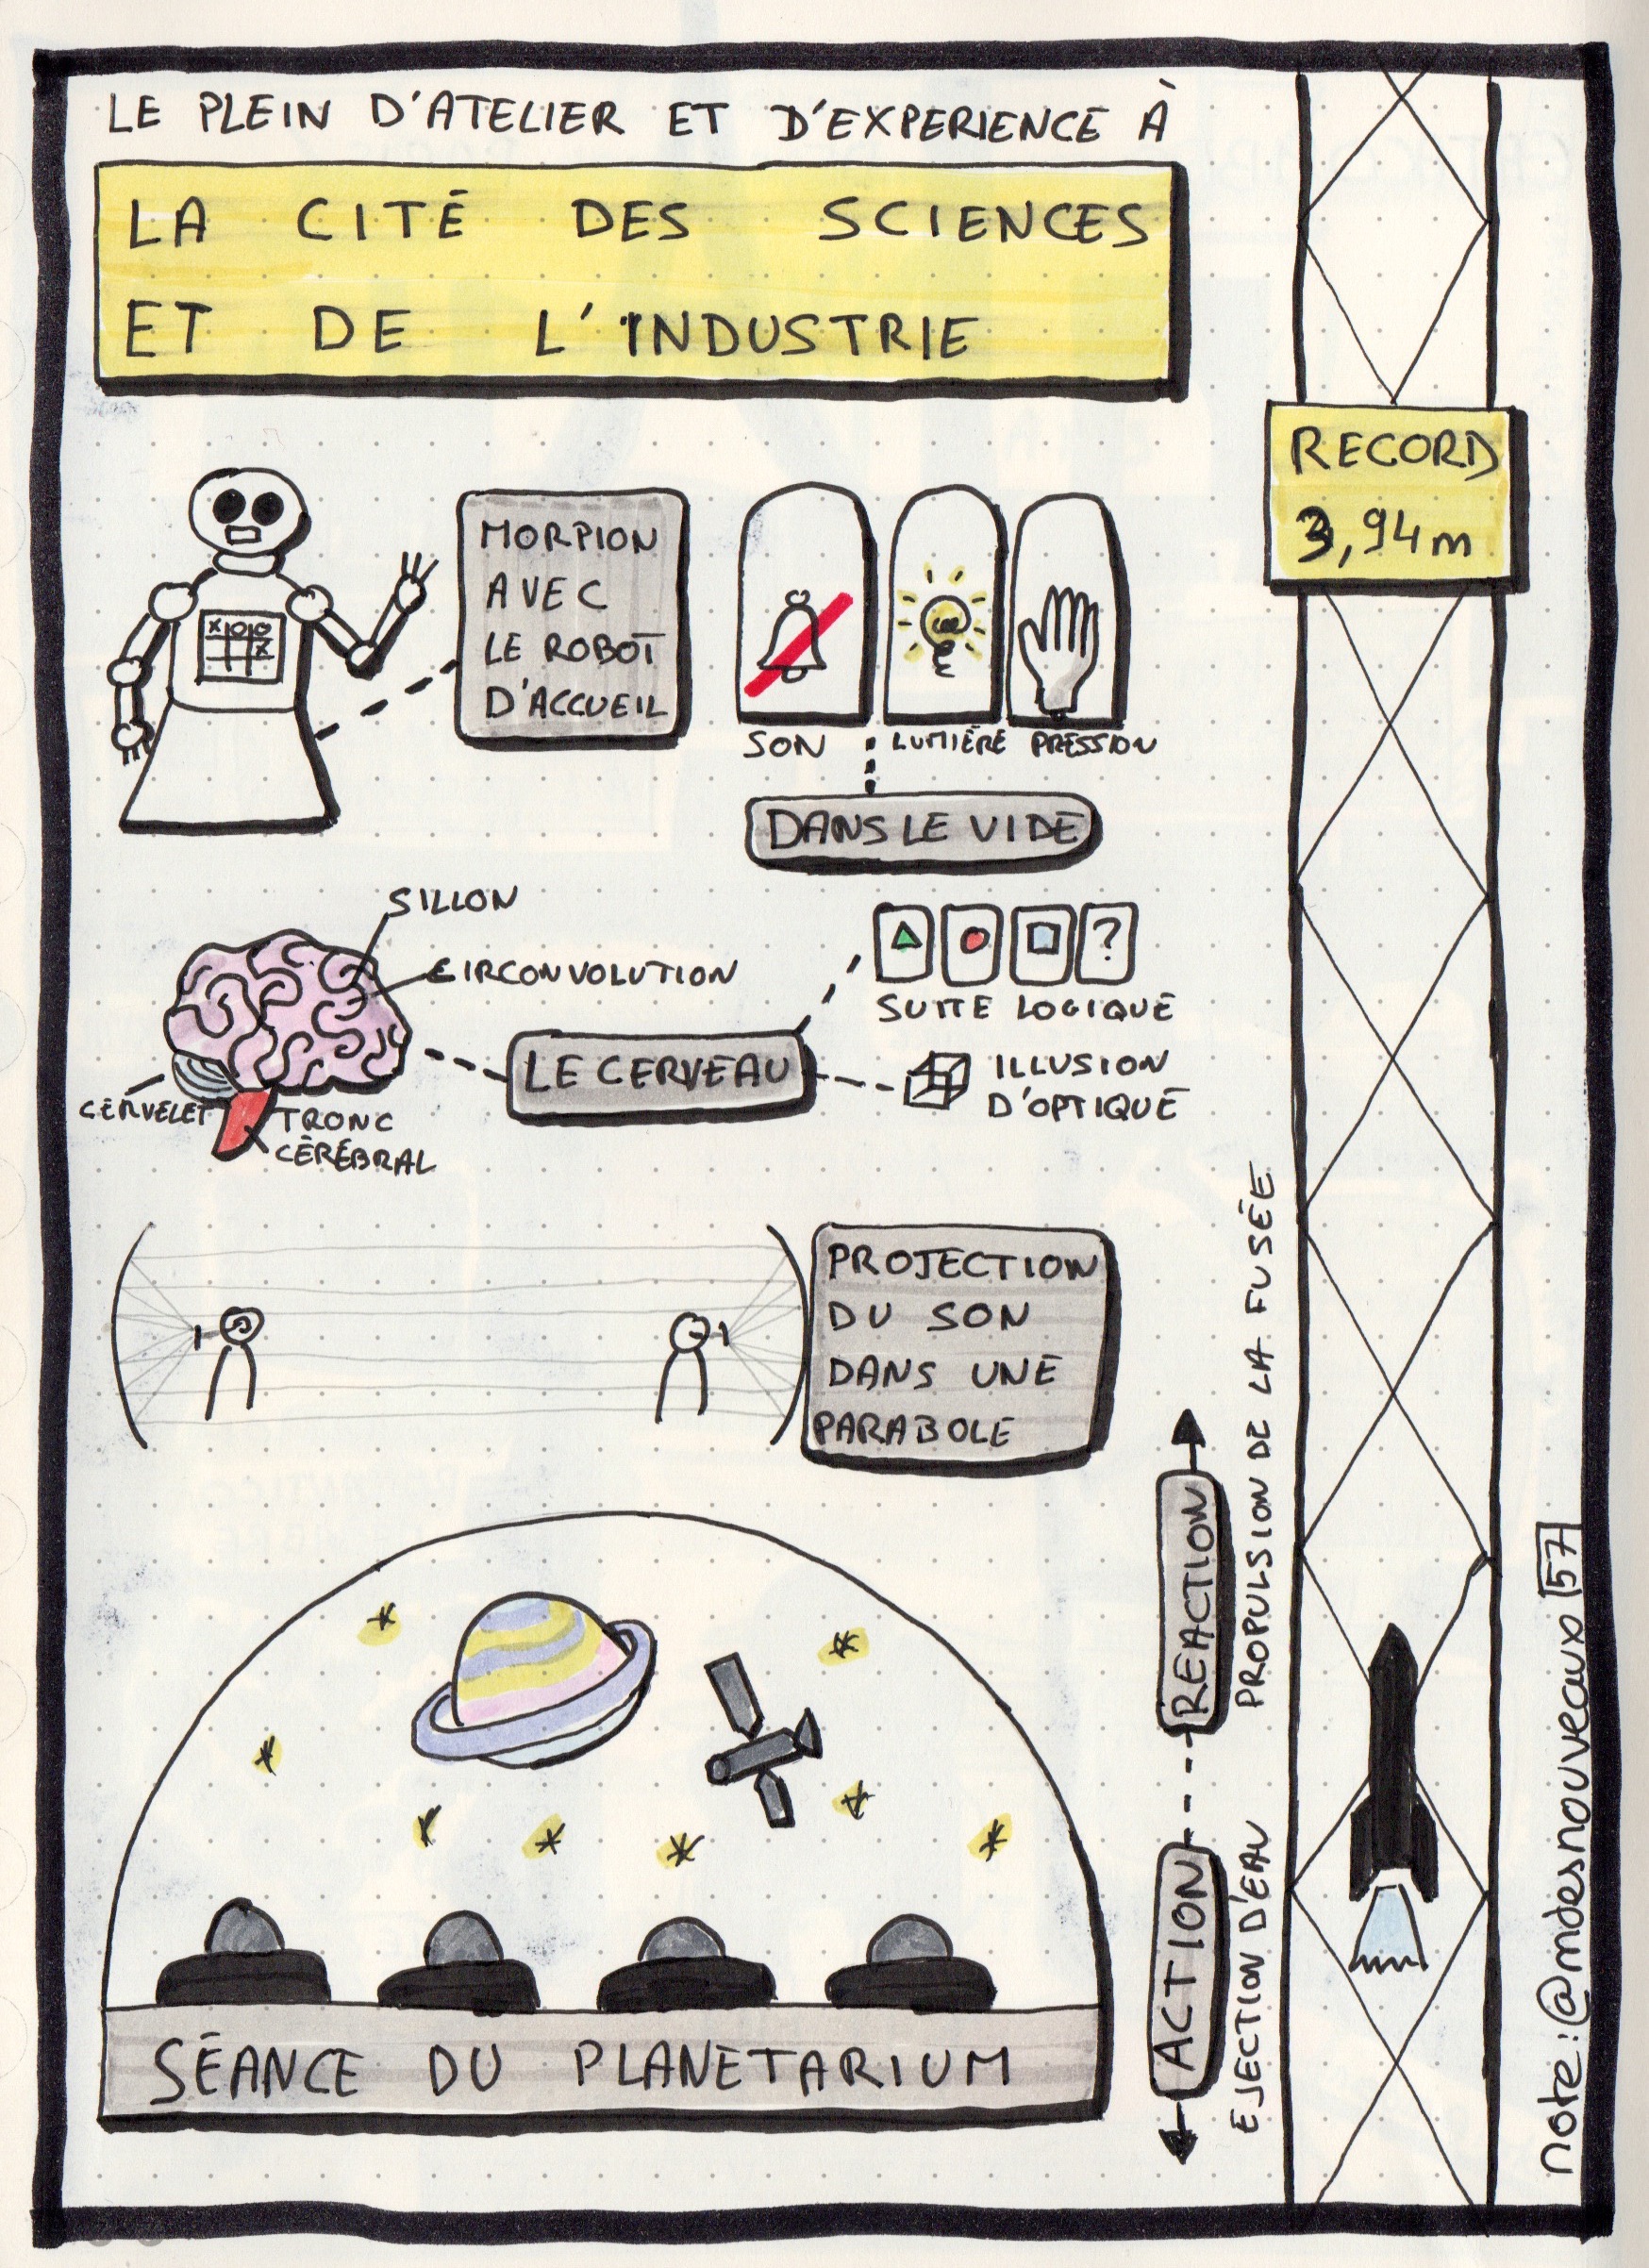 LE PLEIN D'ATELIER ET D'EXPERIENCE À
LA CITÉ DES SCIENCES
ET DE L'INDUSTRIE
RECORD
3,94m
MORPION
AVEC
LE ROBOT
D'ACCUEIL
X O O
X
SON
LUMIÈRE
PRESSION
DANS LE VIDE
SILLON
CIRCONVOLUTION
CERVELET
TRONC
CÉRÉBRAL
LE CERVEAU
?
SUITE LOGIQUE
ILLUSION
D'OPTIQUE
PROJECTION
DU SON
DANS UNE
PARABOLE
REACTION
PROPULSION DE LA FUSÉE
ACTION
EJECTION D'EAU
SÉANCE DU PLANETARIUM
note:@mdesnouveaux 57